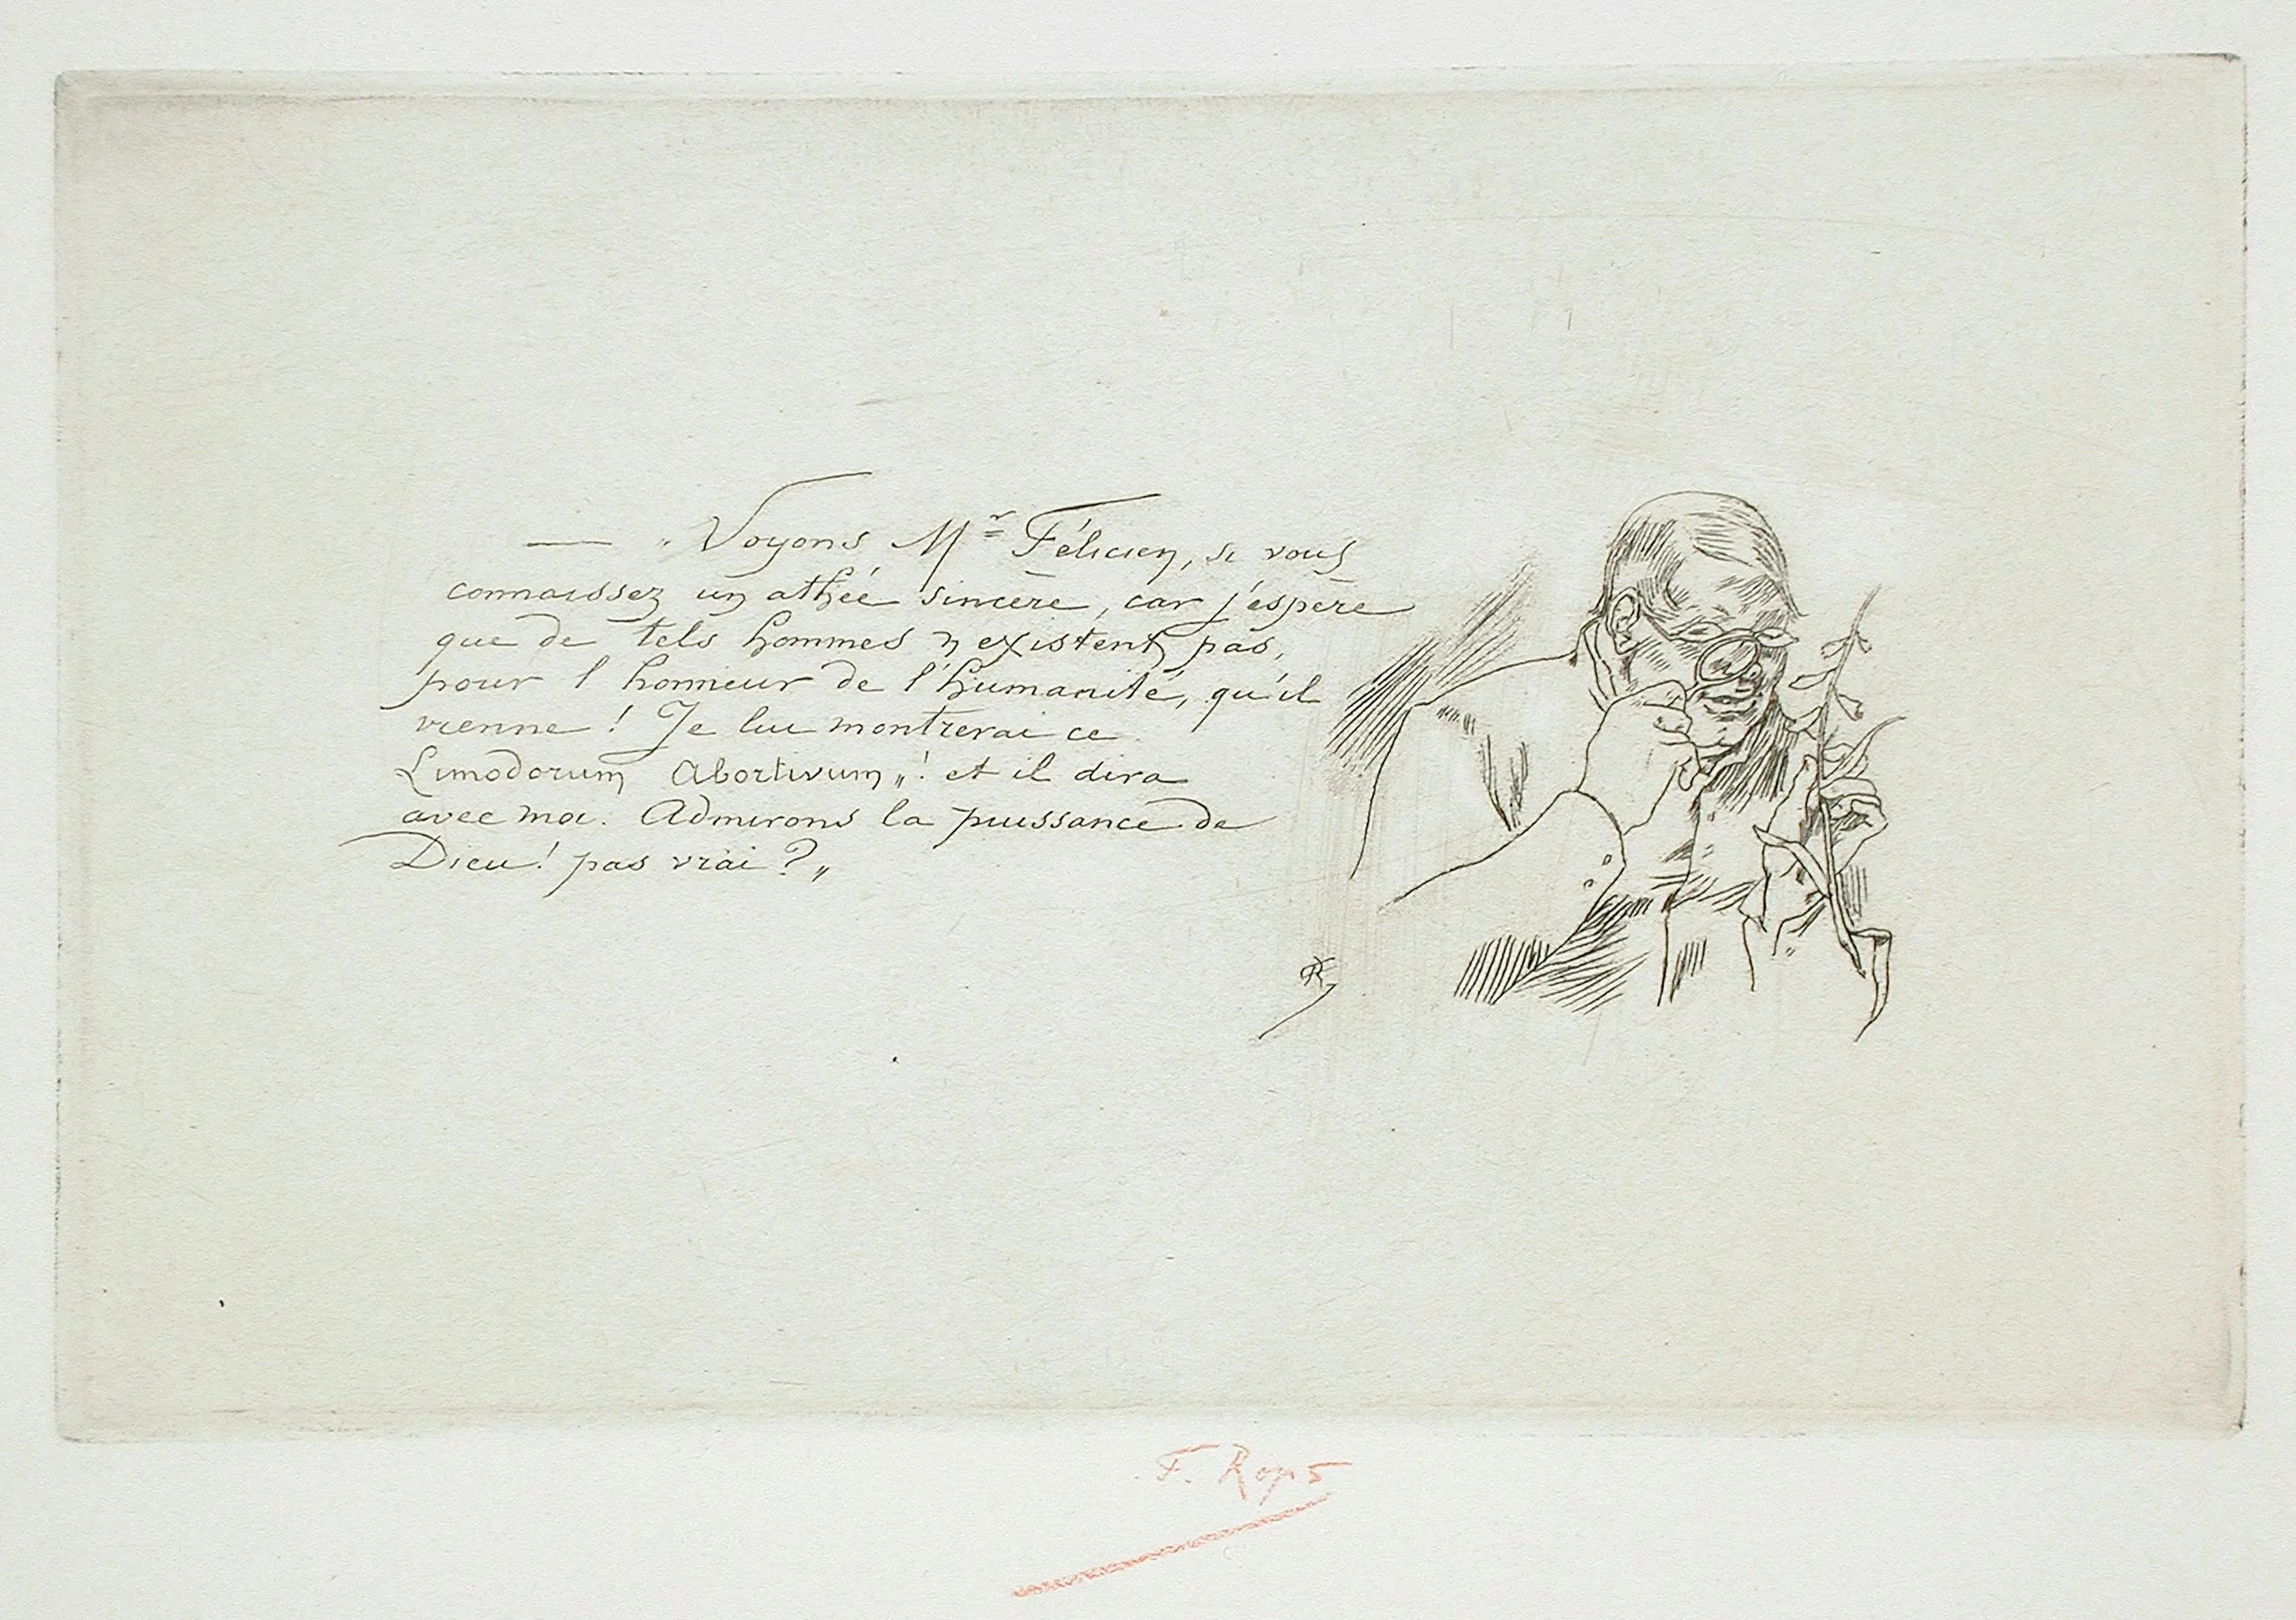 — „ Voyons Mr Félicien, si vous
connaissez un athée sincère, car j'espère
que de tels hommes n'existent pas,
pour l'honneur de l'humanité, qu'il
vienne ! Je lui montrerai ce
Limodorum Abortivum „ ! et il dira
avec moi. Admirons la puissance de
Dieu ! pas vrai ? „
FR
F. Rops